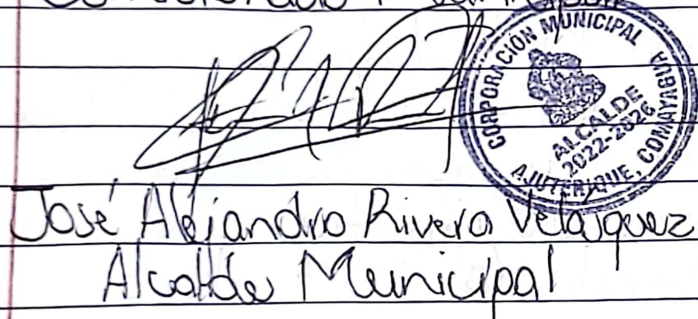 CORPORACIÓN MUNICIPAL
ALCALDE
2022-2026
AJUTERIQUE, COMAYAGUA
José Alejandro Rivera Velásquez
Alcalde Municipal